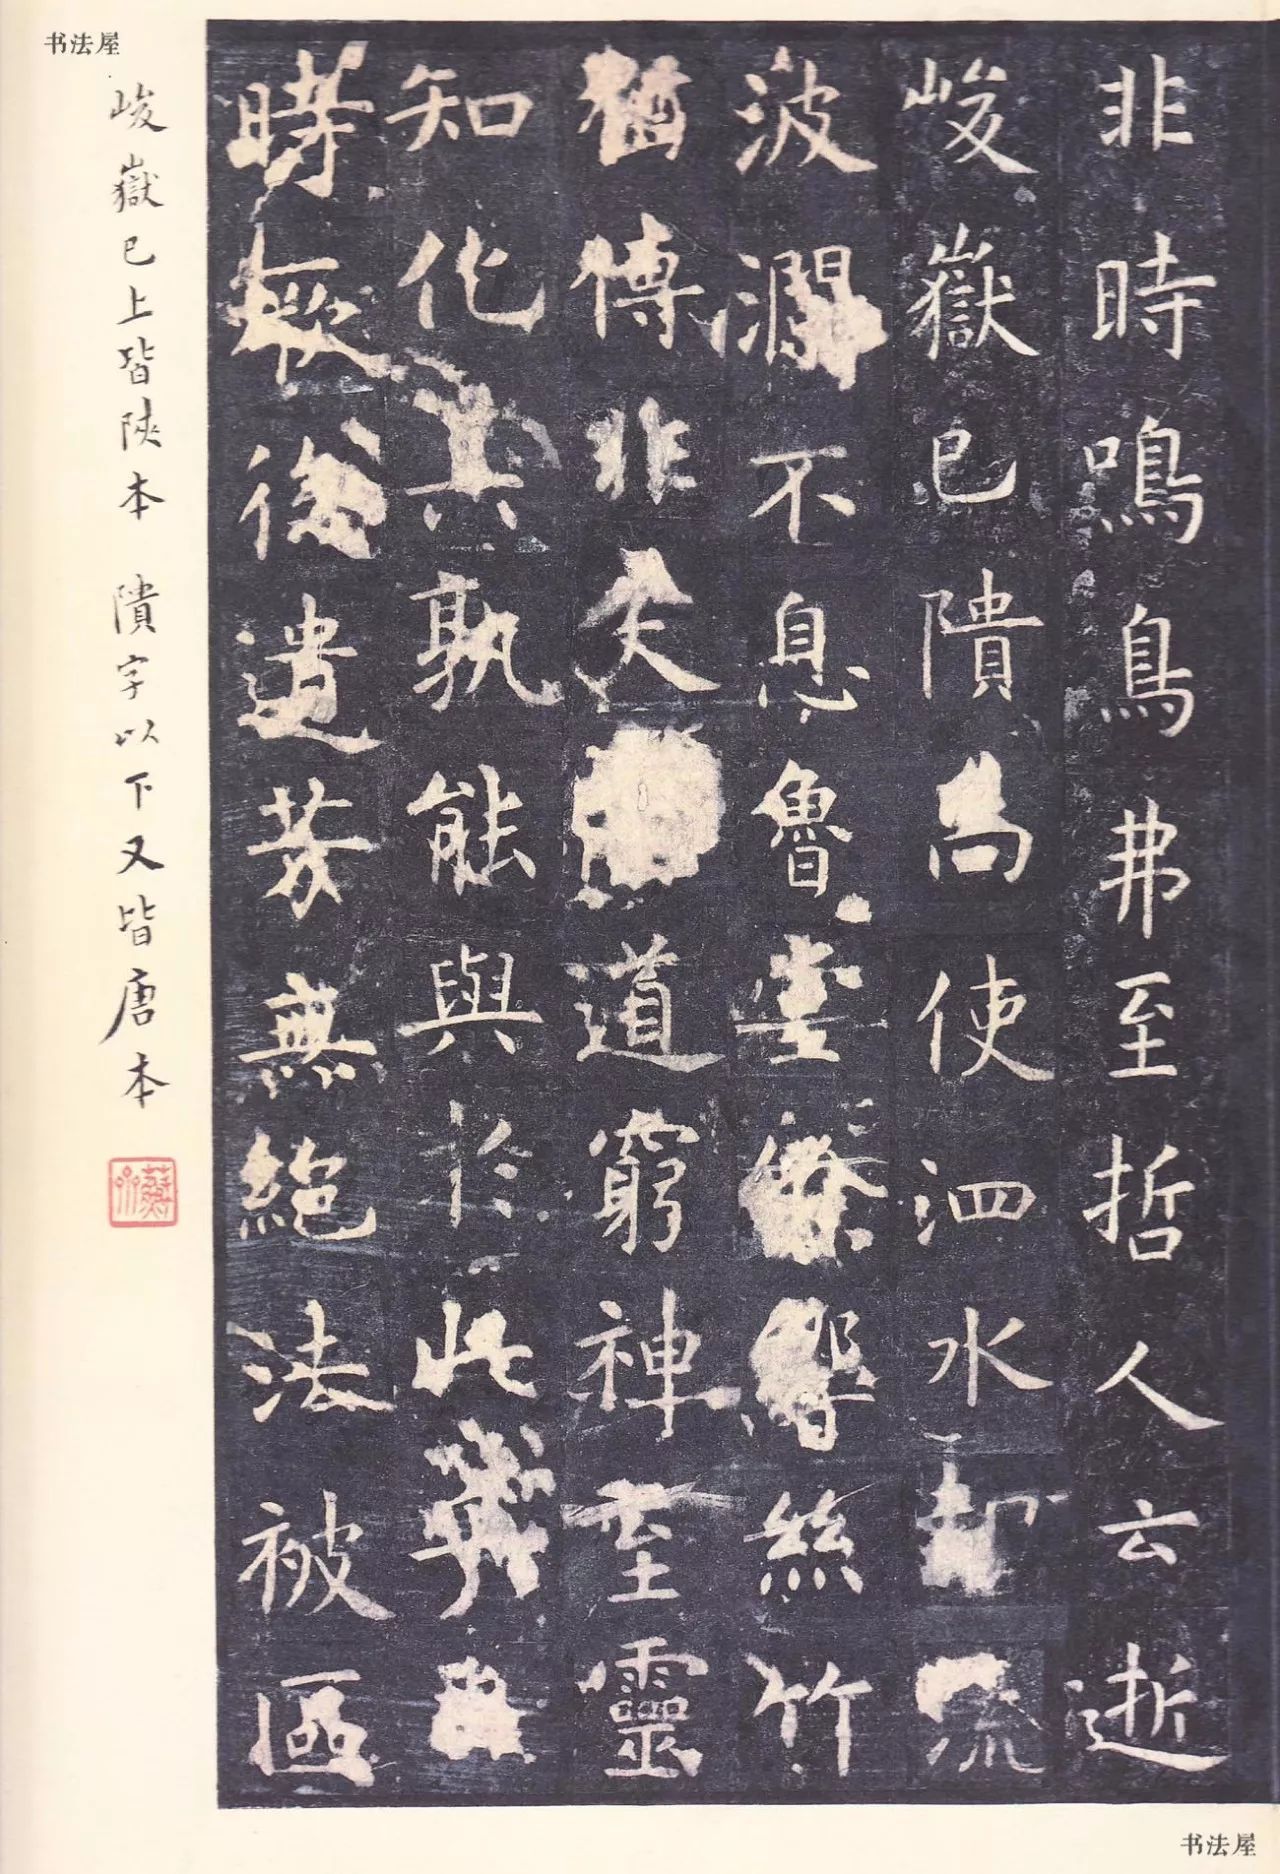 非時鳴鳥弗至哲人云逝
峻嶽已隤尚使泗水却流
波瀾不息魯堂餘響絲竹
猶傳非夫道窮神至靈
知化其孰能與於此乎自
時厥後遺芳無絶法被區
峻嶽已上皆陝本 隤字以下又皆唐本
书法屋
书法屋